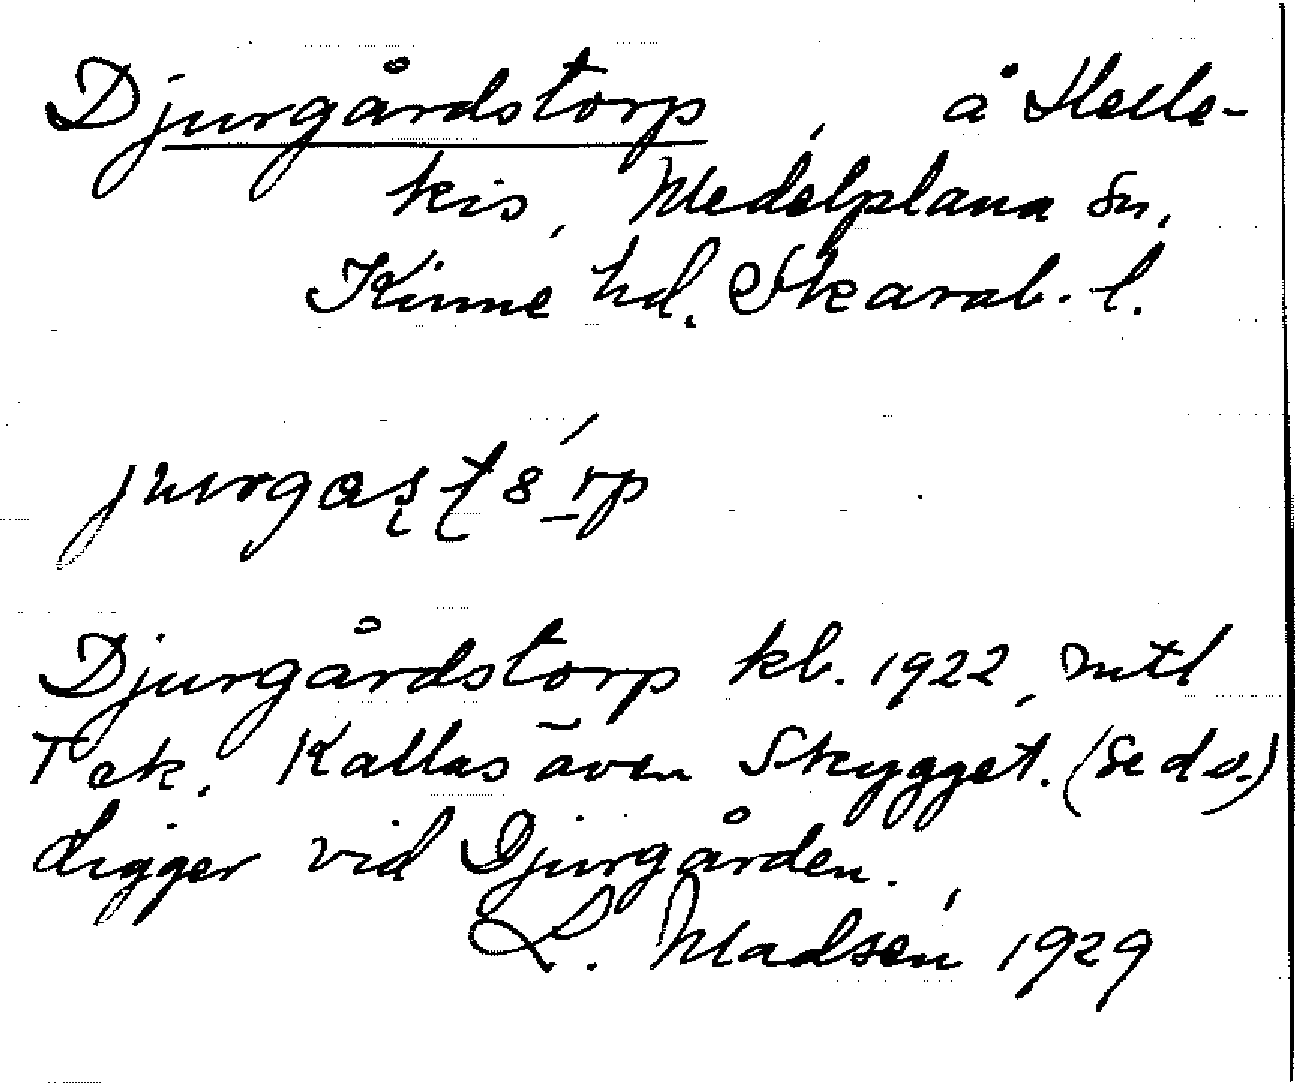 Djurgårdstorp, å Helle-
kis, Medelplana sn,
Kinne hd. Skarab. l.
Djurgårdstorp kb. 1922, mtl
T ek. Kallas även Skygget. (Se d.o.)
Ligger vid Djurgården.
L. Madsén 1929